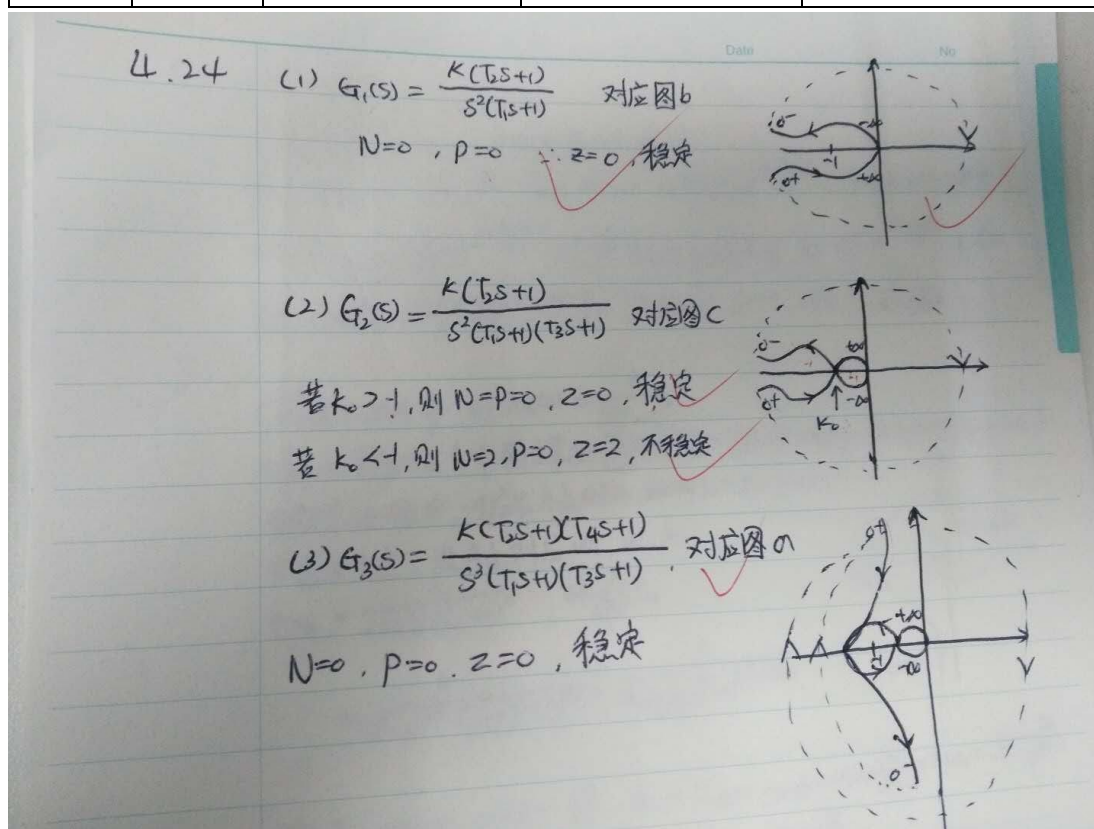 Date No
4.24
(1) G₁(S) = K(T₂S+1) / S²(T₁S+1) 对应图b
N=0 , P=0 ∴ Z=0, 稳定
0- -∞
-1
0+ +∞
(2) G₂(S) = K(T₂S+1) / S²(T₁S+1)(T₃S+1) 对应图C
0- +∞
若K₀>-1,则N=P=0, Z=0, 稳定
0+ K₀ -∞
若K₀<-1,则N=2,P=0, Z=2, 不稳定
(3) G₃(S) = K(T₂S+1)(T₄S+1) / S³(T₁S+1)(T₃S+1) , 对应图a
0+
+∞
N=0 . P=0 . Z=0 , 稳定
-1 -∞
0-